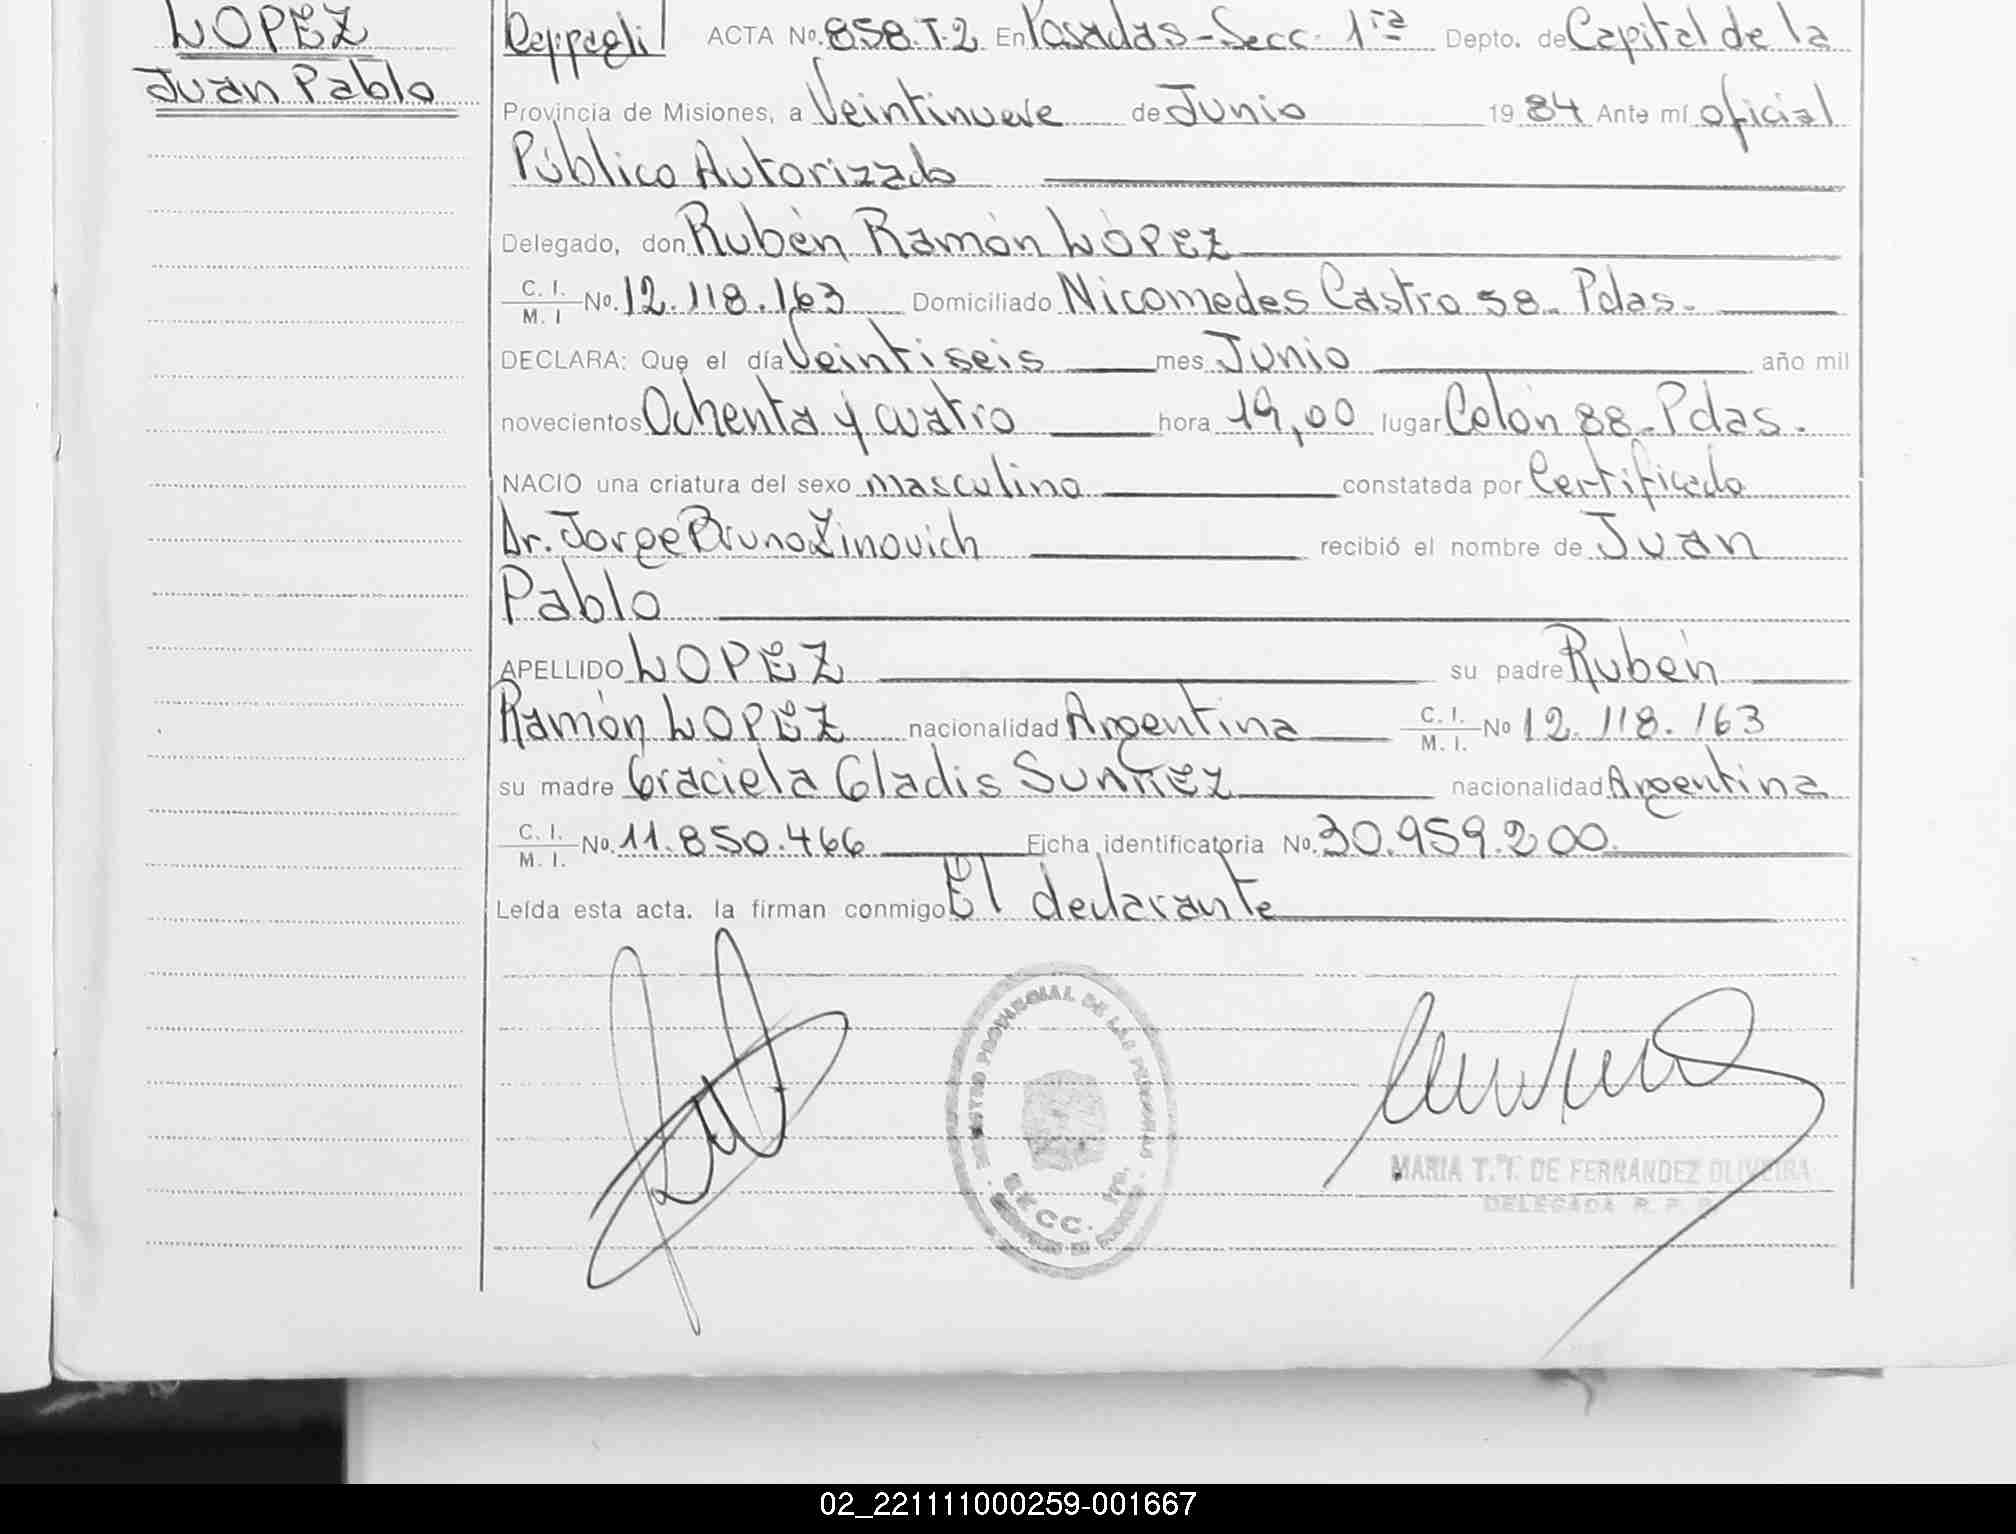 LOPEZ
Juan Pablo
ACTA No. 858.T.2 En Posadas-Secc. 1ra Depto. de Capital de la
Provincia de Misiones, a Veintinueve de Junio 1984 Ante mí oficial
Público Autorizado
Delegado, don Rubén Ramón LÓPEZ
C. I. M. I No. 12.118.163 Domiciliado Nicomedes Castro 58_ Pdas.
DECLARA: Que el día Veintiseis mes Junio año mil
novecientos Ochenta y cuatro hora 19,00 lugar Colón 88_Pdas.
NACIO una criatura del sexo masculino constatada por Certificado
Dr. Jorge Bruno Zinovich recibió el nombre de Juan
Pablo
APELLIDO LOPEZ su padre Rubén
Ramón LOPEZ nacionalidad Argentina C. I. M. I. No 12.118.163
su madre Graciela Gladis nacionalidad Argentina
C. I. M. I. No. 11.850.466 Ficha identificatoria No. 30.959.200.
Leída esta acta. la firman conmigo El declarante
REGISTRO PROVINCIAL DE LAS PERSONAS
SECC. 1ra.
MARIA T. T. DE FERNANDEZ OLIVEIRA
DELEGADA R. P. P.
02_221111000259-001667